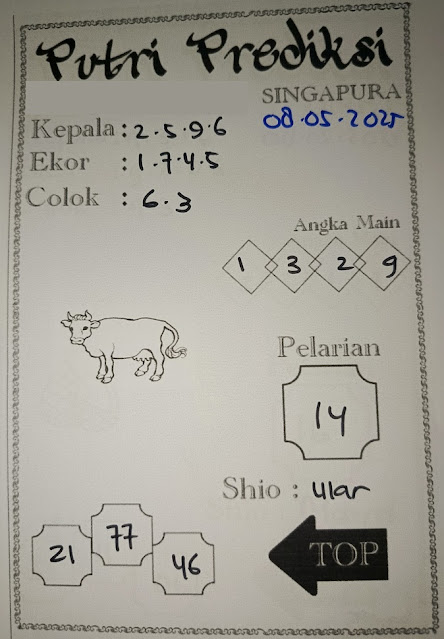 Putri Prediksi
SINGAPURA
08.05.2025
Kepala : 2.5.9.6
Ekor : 1.7.4.5
Colok : 6.3
Angka Main
1 3 2 9
Pelarian
14
Shio : ular
21 77 46
TOP